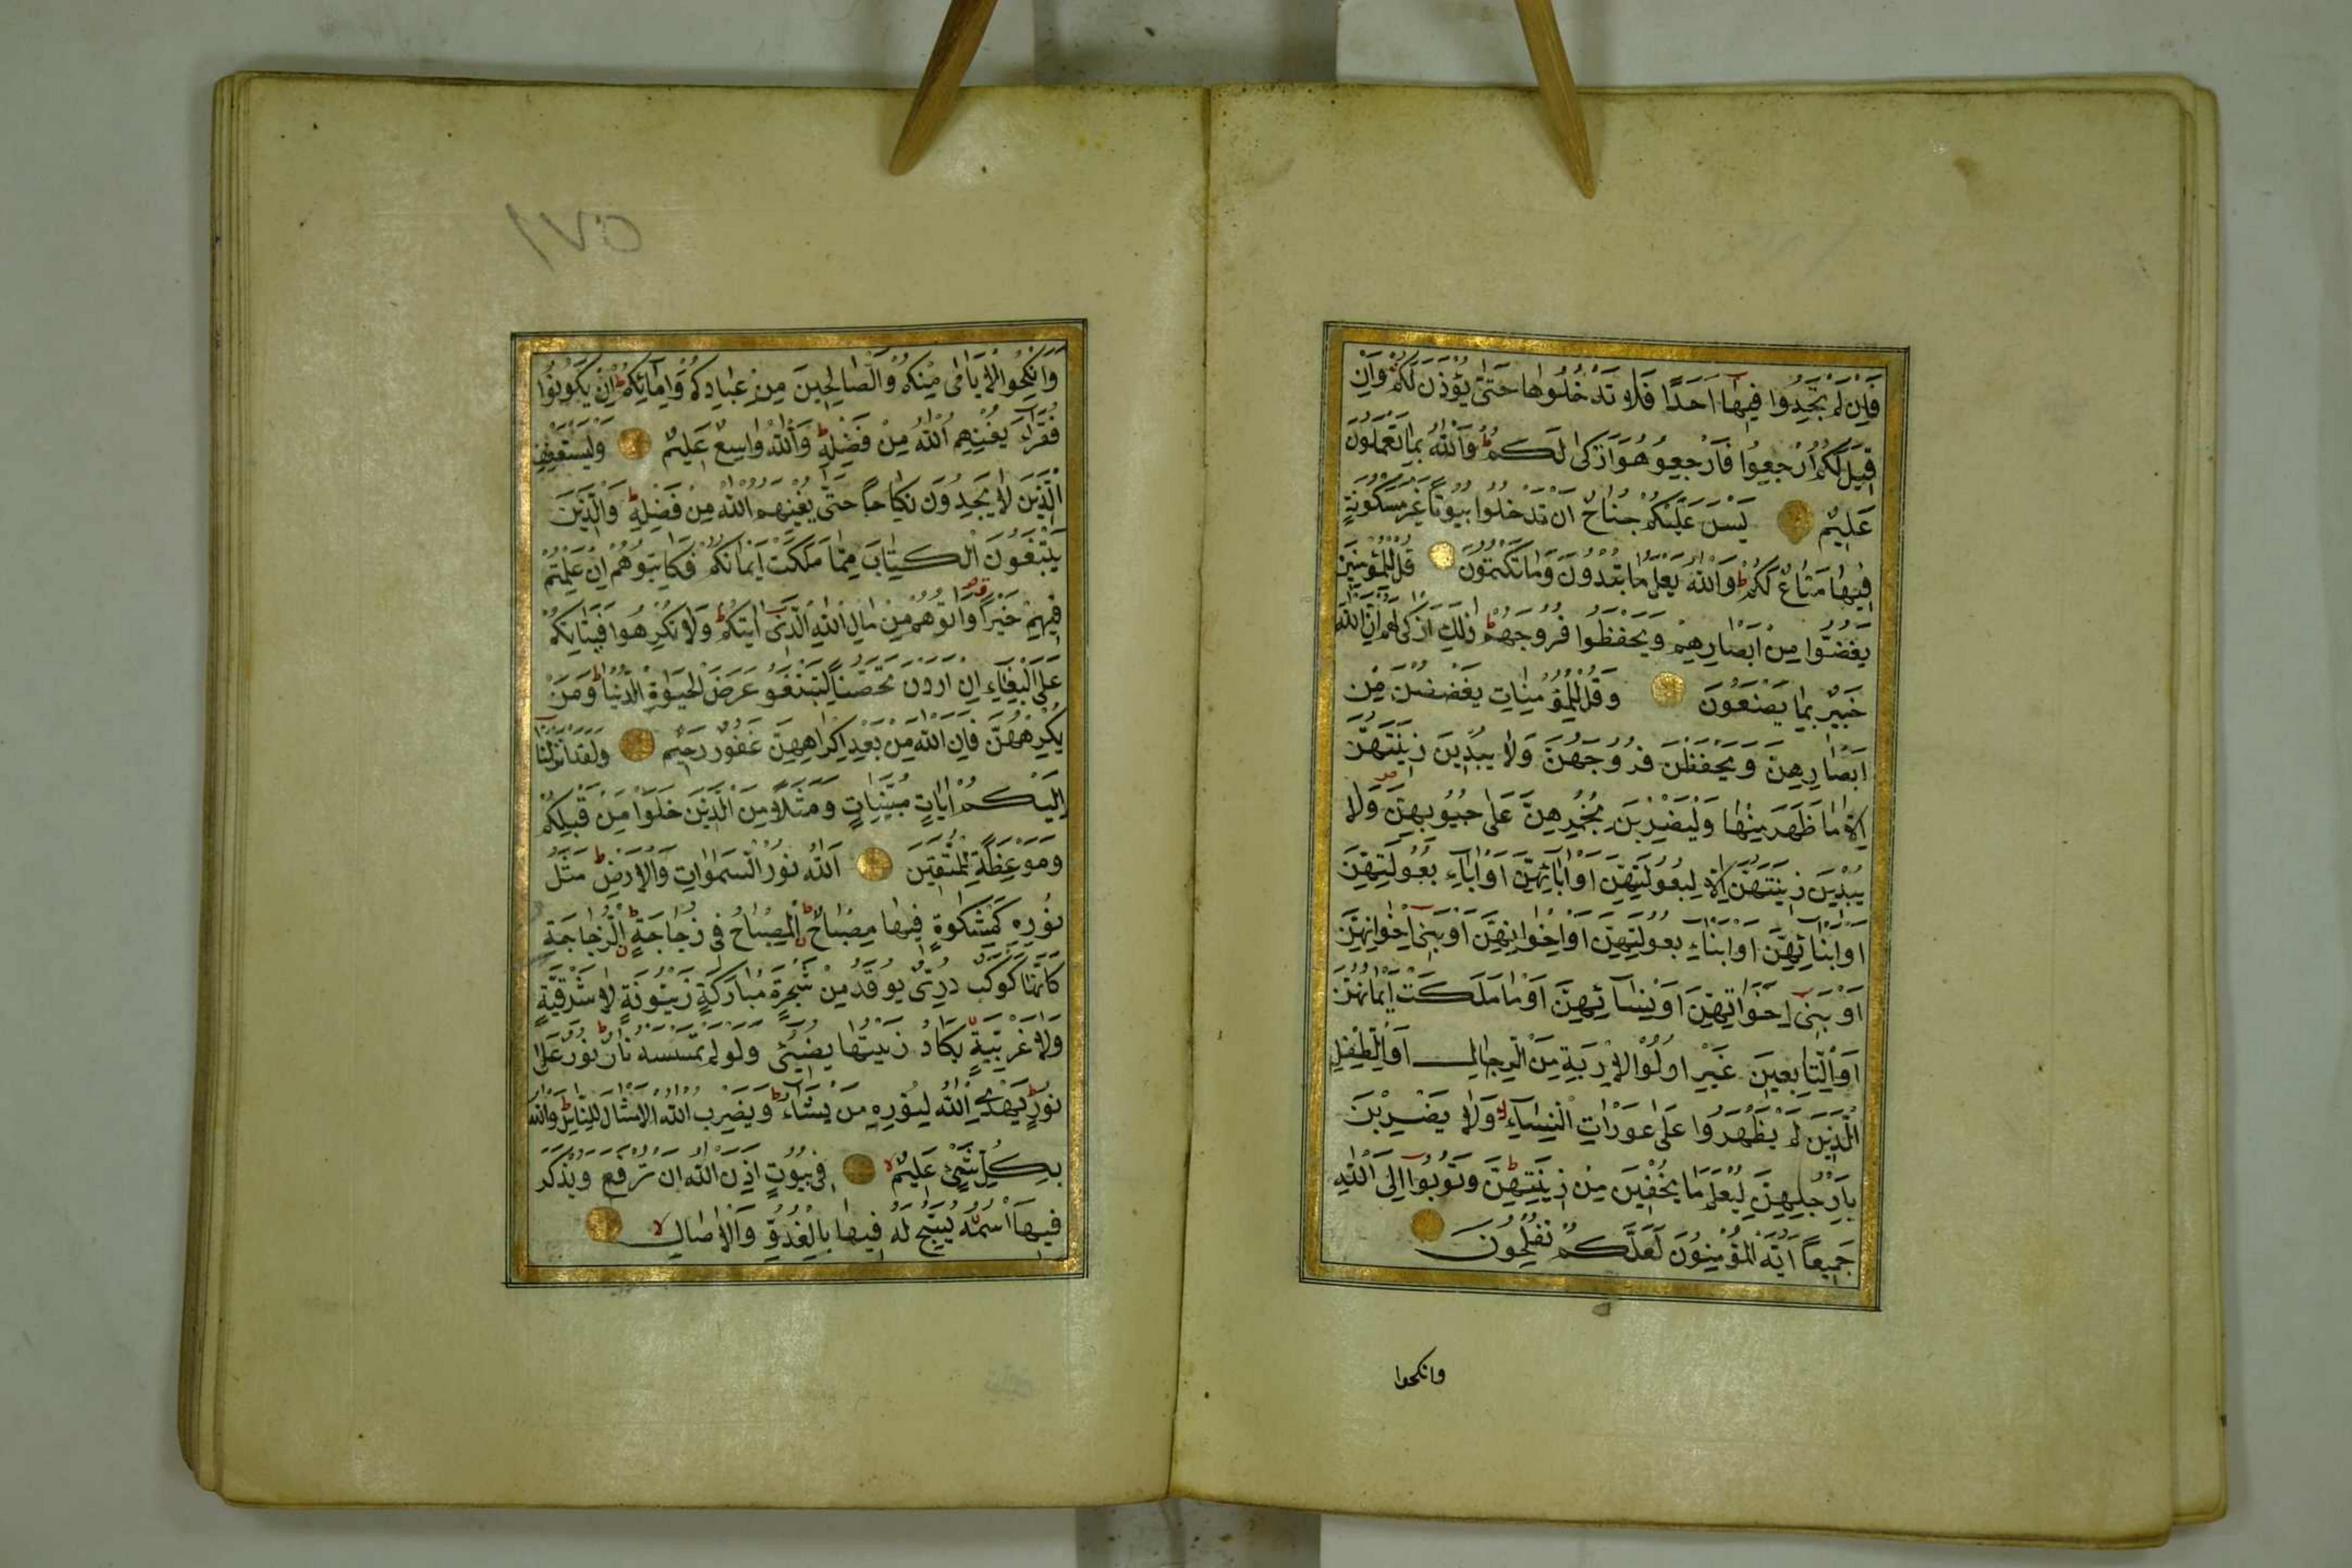 فَاِنْ لَمْ تَجِدُوا فِيهَا اَحَدًا فَلَا تَدْخُلُوهَا حَتّٰى يُؤْذَنَ لَكُمْ وَاِنْ
قِيلَ لَكُمُ ارْجِعُوا فَارْجِعُوا هُوَ اَزْكٰى لَكُمْ ط وَاللّٰهُ بِمَا تَعْمَلُونَ
عَلِيمٌ لَيْسَ عَلَيْكُمْ جُنَاحٌ اَنْ تَدْخُلُوا بُيُوتًا غَيْرَ مَسْكُونَةٍ
فِيهَا مَتَاعٌ لَكُمْ ط وَاللّٰهُ يَعْلَمُ مَا تُبْدُونَ وَمَا تَكْتُمُونَ قُلْ لِلْمُؤْمِنِينَ
يَغُضُّوا مِنْ اَبْصَارِهِمْ وَيَحْفَظُوا فُرُوجَهُمْ ط ذٰلِكَ اَزْكٰى لَهُمْ اِنَّ اللّٰهَ
خَبِيرٌ بِمَا يَصْنَعُونَ وَقُلْ لِلْمُؤْمِنَاتِ يَغْضُضْنَ مِنْ
اَبْصَارِهِنَّ وَيَحْفَظْنَ فُرُوجَهُنَّ وَلَا يُبْدِينَ زِينَتَهُنَّ
اِلَّا مَا ظَهَرَ مِنْهَا وَلْيَضْرِبْنَ بِخُمُرِهِنَّ عَلٰى جُيُوبِهِنَّ وَلَا
يُبْدِينَ زِينَتَهُنَّ اِلَّا لِبُعُولَتِهِنَّ اَوْ اٰبَائِهِنَّ اَوْ اٰبَاءِ بُعُولَتِهِنَّ
اَوْ اَبْنَائِهِنَّ اَوْ اَبْنَاءِ بُعُولَتِهِنَّ اَوْ اِخْوَانِهِنَّ اَوْ بَنِى اِخْوَانِهِنَّ
اَوْ بَنِى اَخَوَاتِهِنَّ اَوْ نِسَائِهِنَّ اَوْ مَا مَلَكَتْ اَيْمَانُهُنَّ
اَوِ التَّابِعِينَ غَيْرِ اُولُوا الْاِرْبَةِ مِنَ الرِّجَالِ اَوِ الطِّفْلِ
الَّذِينَ لَمْ يَظْهَرُوا عَلٰى عَوْرَاتِ النِّسَاءِ وَلَا يَضْرِبْنَ
بِاَرْجُلِهِنَّ لِيُعْلَمَ مَا يُخْفِينَ مِنْ زِينَتِهِنَّ ط وَتُوبُوا اِلَى اللّٰهِ
جَمِيعًا اَيُّهَ الْمُؤْمِنُونَ لَعَلَّكُمْ تُفْلِحُونَ
وانكحوا
١٧٥
وَاَنْكِحُوا الْاَيَامٰى مِنْكُمْ وَالصَّالِحِينَ مِنْ عِبَادِكُمْ وَاِمَائِكُمْ ط اِنْ يَكُونُوا
فُقَرَاءَ يُغْنِهِمُ اللّٰهُ مِنْ فَضْلِهِ ط وَاللّٰهُ وَاسِعٌ عَلِيمٌ وَلْيَسْتَعْفِفِ
الَّذِينَ لَا يَجِدُونَ نِكَاحًا حَتّٰى يُغْنِيَهُمُ اللّٰهُ مِنْ فَضْلِهِ ط وَالَّذِينَ
يَبْتَغُونَ الْكِتَابَ مِمَّا مَلَكَتْ اَيْمَانُكُمْ فَكَاتِبُوهُمْ اِنْ عَلِمْتُمْ
فِيهِمْ خَيْرًا وَاٰتُوهُمْ مِنْ مَالِ اللّٰهِ الَّذِى اٰتٰيكُمْ ط وَلَا تُكْرِهُوا فَتَيَاتِكُمْ
عَلَى الْبِغَاءِ اِنْ اَرَدْنَ تَحَصُّنًا لِتَبْتَغُوا عَرَضَ الْحَيٰوةِ الدُّنْيَا ط وَمَنْ
يُكْرِهْهُنَّ فَاِنَّ اللّٰهَ مِنْ بَعْدِ اِكْرَاهِهِنَّ غَفُورٌ رَحِيمٌ وَلَقَدْ اَنْزَلْنَا
اِلَيْكُمْ اٰيَاتٍ مُبَيِّنَاتٍ وَمَثَلًا مِنَ الَّذِينَ خَلَوْا مِنْ قَبْلِكُمْ
وَمَوْعِظَةً لِلْمُتَّقِينَ اَللّٰهُ نُورُ السَّمٰوَاتِ وَالْاَرْضِ ط مَثَلُ
نُورِهِ كَمِشْكٰوةٍ فِيهَا مِصْبَاحٌ ط اَلْمِصْبَاحُ فِى زُجَاجَةٍ ط اَلزُّجَاجَةُ
كَاَنَّهَا كَوْكَبٌ دُرِّىٌّ يُوقَدُ مِنْ شَجَرَةٍ مُبَارَكَةٍ زَيْتُونَةٍ لَا شَرْقِيَّةٍ
وَلَا غَرْبِيَّةٍ يَكَادُ زَيْتُهَا يُضِىءُ وَلَوْ لَمْ تَمْسَسْهُ نَارٌ ط نُورٌ عَلٰى
نُورٍ ط يَهْدِى اللّٰهُ لِنُورِهِ مَنْ يَشَاءُ ط وَيَضْرِبُ اللّٰهُ الْاَمْثَالَ لِلنَّاسِ ط وَاللّٰهُ
بِكُلِّ شَىْءٍ عَلِيمٌ لا فِى بُيُوتٍ اَذِنَ اللّٰهُ اَنْ تُرْفَعَ وَيُذْكَرَ
فِيهَا اسْمُهُ يُسَبِّحُ لَهُ فِيهَا بِالْغُدُوِّ وَالْاٰصَالِ لا